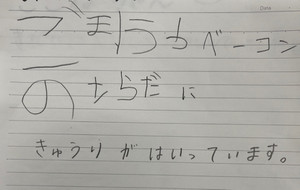 ベーコン
のサらだに
きゅうりがはいっています。